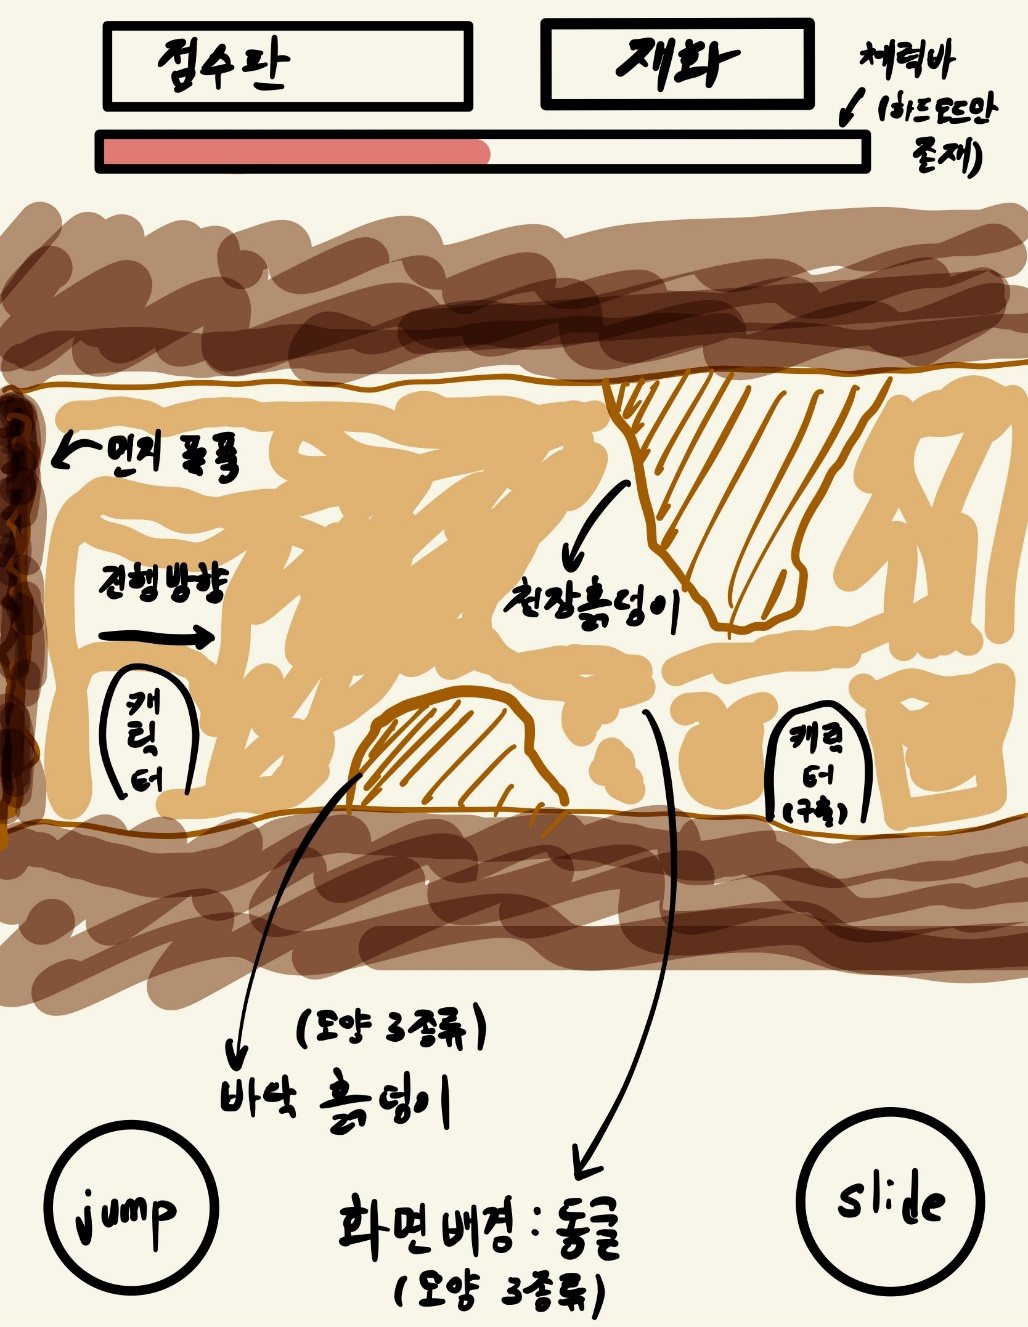 점수판
재화
체력바
(하드모드만
존재)
먼지 폴폴
진행방향
천장흙덩이
캐
릭
터
캐릭
터
(구출)
(모양 3종류)
바닥 흙덩이
jump
slide
화면배경 : 동굴
(모양 3종류)